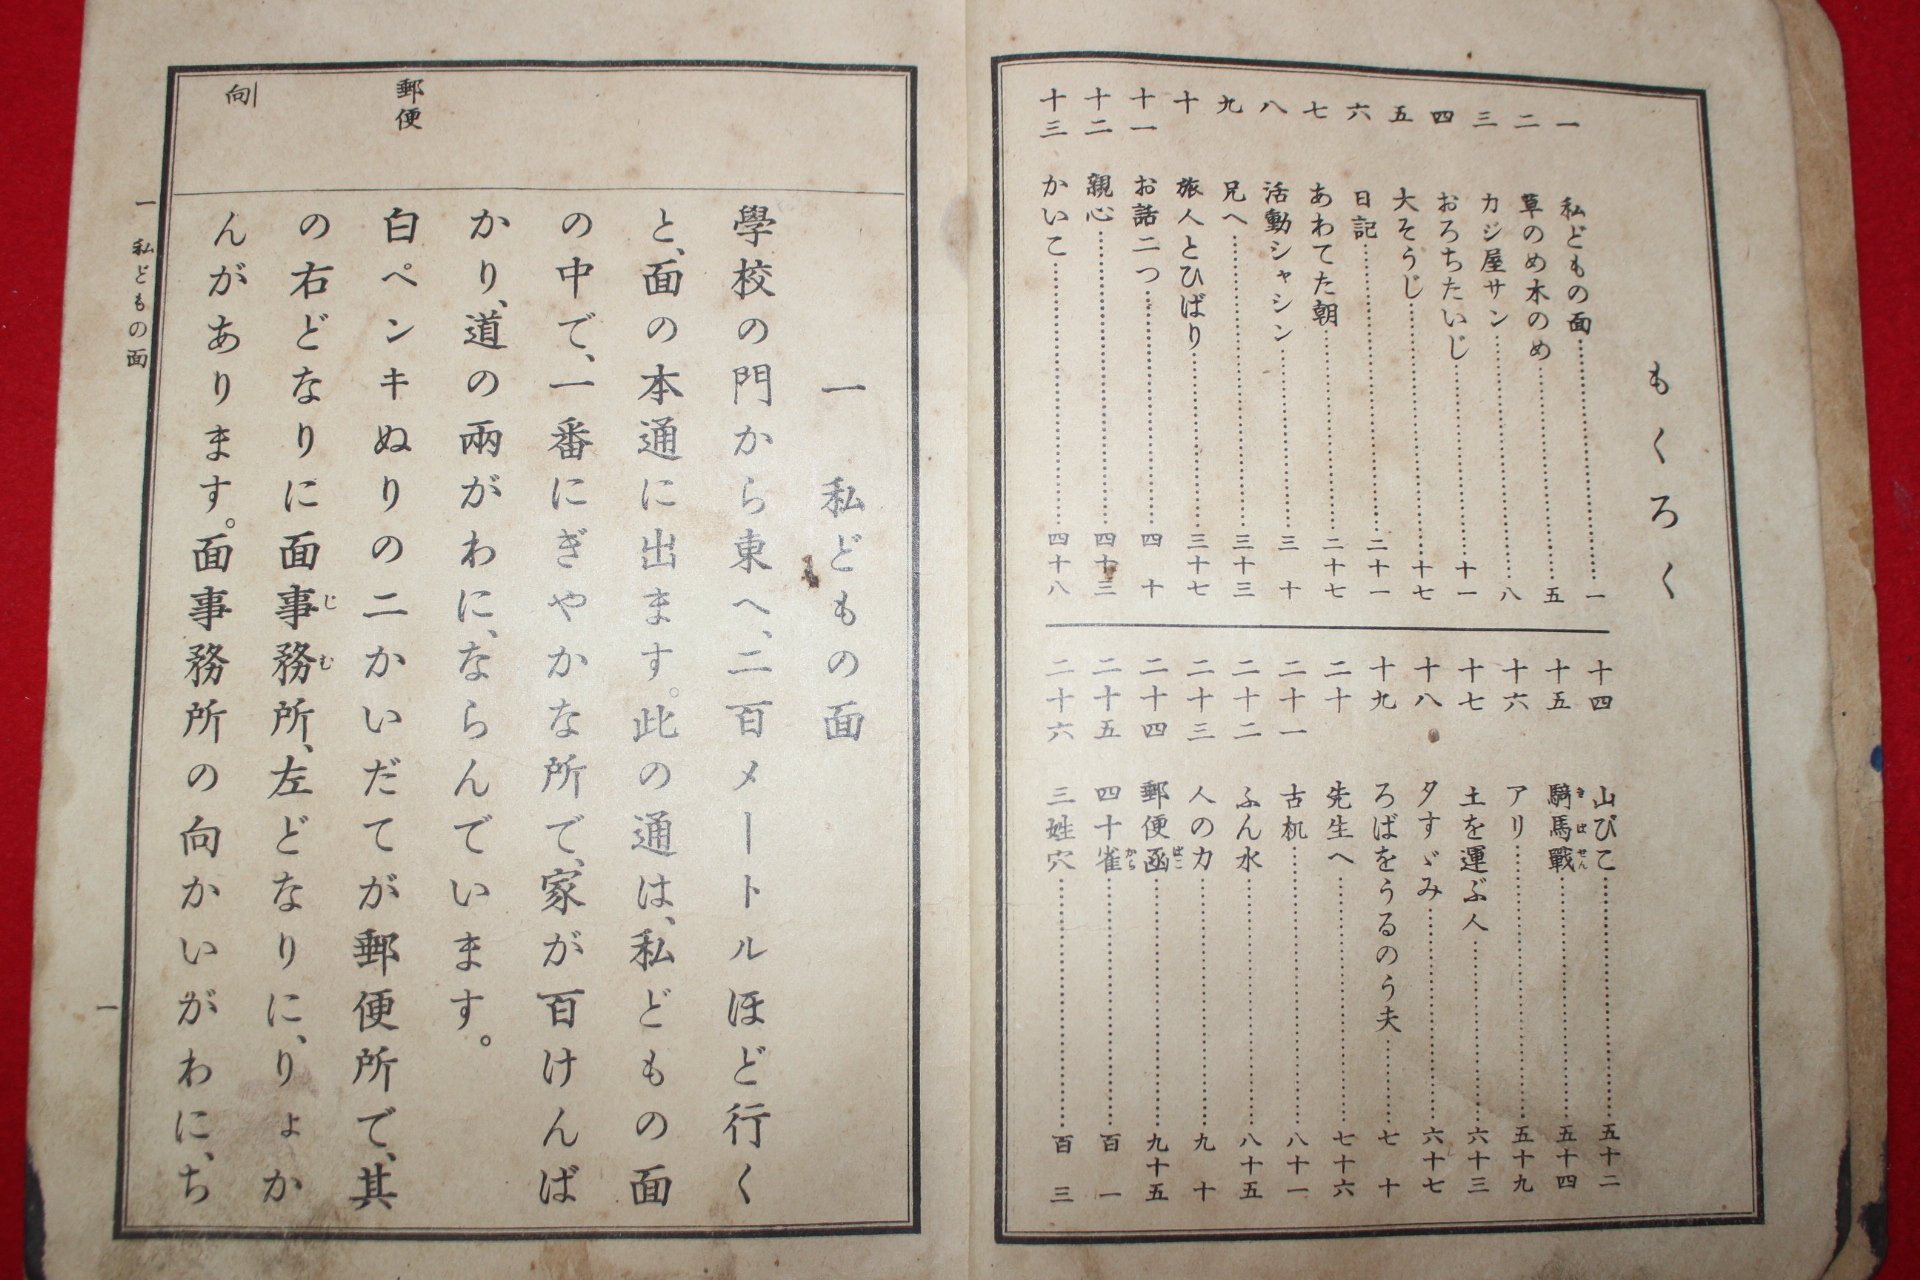 もくろく
一 私どもの面……一
二 草のめ木のめ……五
三 カジ屋サン……八
四 おろちたいじ……十一
五 大そうじ……十七
六 日記……二十一
七 あわてた朝……二十七
八 活動シャシン……三十
九 兄へ……三十三
十 旅人とひばり……三十七
十一 お話二つ……四十
十二 親心……四十三
十三 かいこ……四十八
十四 山びこ……五十二
十五 騎馬戰……五十四
きばせん
十六 アリ……五十九
十七 土を運ぶ人……六十三
十八 夕すゞみ……六十七
十九 ろばをうるのう夫……七十
二十 先生へ……七十六
二十一 古机……八十一
二十二 ふん水……八十五
二十三 人の力……九十
二十四 郵便函……九十五
ばこ
二十五 四十雀……百一
から
二十六 三姓穴……百三
一 私どもの面
學校の門から東へ、二百メートルほど行く
と、面の本通に出ます。此の通は、私どもの面
の中で、一番にぎやかな所で、家が百けんば
かり、道の兩がわに、ならんでいます。
白ペンキぬりの二かいだてが郵便所で、其
の右どなりに面事務所、左どなりに、りょか
じむ
んがあります。面事務所の向かいがわに、ち
郵便
向
一 私どもの面
一